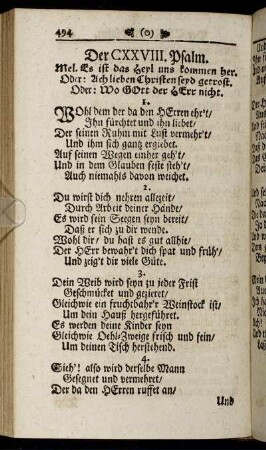 494
(o)
Der CXXVIII. Psalm.
Mel. Es ist das Heyl uns kommen her.
Oder: Ach lieben Christen seyd getrost.
Oder: Wo GOtt der HErr nicht.
1.
WOhl dem der da den HErren ehr't/
Ihn fürchtet und ihn liebet/
Der seinen Ruhm mit Lust vermehr't/
Und ihm sich gantz ergiebet.
Auf seinen Wegen einher geh't/
Und in dem Glauben feste steh't/
Auch niemahls davon weichet.
2.
Du wirst dich nehren allezeit/
Durch Arbeit deiner Hände/
Es wird sein Seegen seyn bereit/
Daß er sich zu dir wende.
Wohl dir/ du hast es gut allhie/
Der HErr bewahr't dich spat und früh/
Und zeig't dir viele Güte.
3.
Dein Weib wird seyn zu jeder Frist
Geschmücket und gezieret/
Gleichwie ein fruchtbahr'r Weinstock ist/
Um dein Hauß hergeführet.
Es werden deine Kinder seyn
Gleichwie Oehl-Zweige frisch und fein/
Um deinen Tisch herstehend.
4.
Sieh'! also wird derselbe Mann
Gesegnet und vermehret/
Der da den HErren ruffet an/
Und